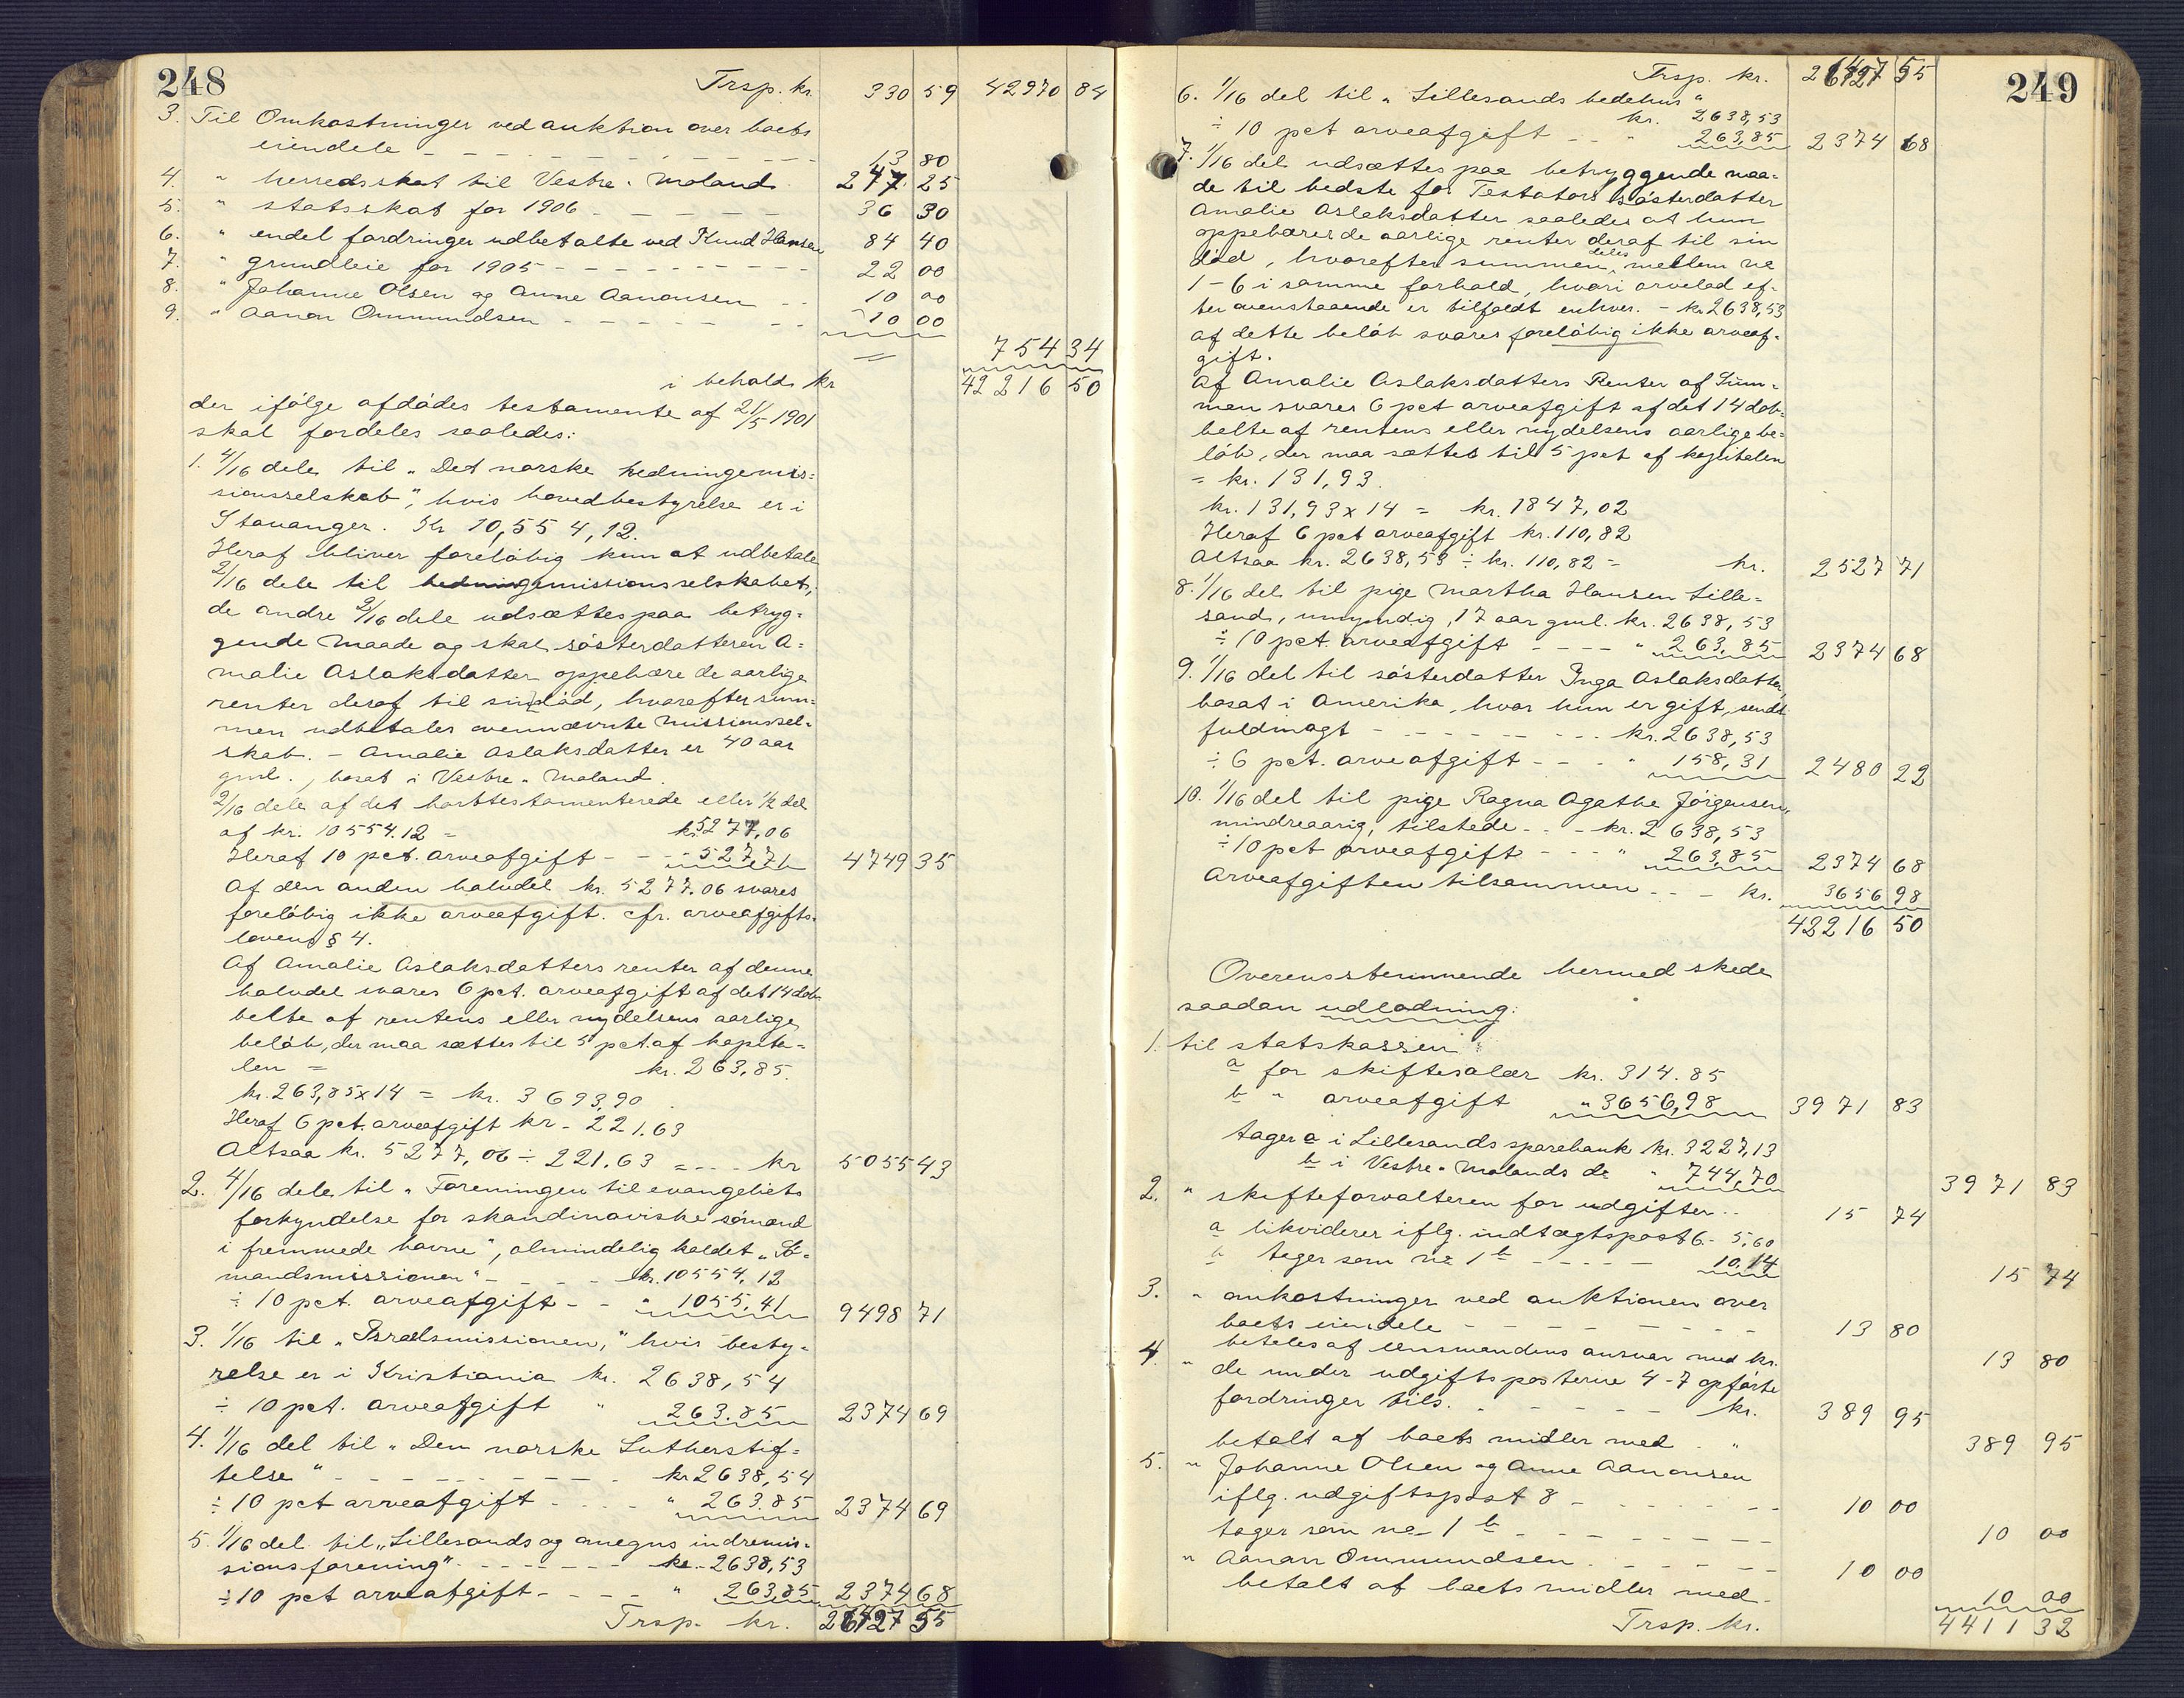 248
Trsp. kr. 330 59 42970 84
3. Til Omkostninger ved auktion over boets
eiendele - - - 13 80
4. " herredsskat til Vestre-Moland 247 25
5. " statsskat for 1906 - - - 36 30
6. " endel fordringer udbetalte ved Knud Hansen 84 40
7. " grundleie for 1905 - - - 22 00
8. " Johanne Olsen og Anne Aanonsen - - 10 00
9. " Aanon Ommundsen - - - 10 00
754 34
i behold kr 42216 50
der ifølge afdødes testamente af 21/5 1901
skal fordeles saaledes:
1. 4/16 dele til "Det norske hedningemis=
sionsselskab", hvis hovedbestyrelse er i
Stavanger. Kr 10,554,12.
Heraf bliver foreløbig kun at udbetale
2/16 dele til hedningemissionsselskabet;
de andre 2/16 dele udsættes paa betryg=
gende maade og skal søsterdatteren A=
malie Aslaksdatter oppebære de aarlige
renter deraf til sin død, hvorefter sum=
men udbetales ovennævnte missionssel=
skab. - Amalie Aslaksdatter er 40 aar
gml., bosat i Vestre-Moland.
2/16 dele af det borttestamenterede eller 1/2 del
af kr. 10554.12 = kr. 5277,06
Heraf 10 pct. arveafgift - - - 527,71 4749 35
Af den anden halvdel kr. 5277.06 svares
foreløbig ikke arveafgift. cfr. arveafgifts=
lovens § 4.
Af Amalie Aslaksdatters renter af denne
halvdel svares 6 pct. arveafgift af det 14 dob=
belte af rentens eller nydelsens aarlige
beløb, der maa sættes til 5 pct. af kapita=
len = kr. 263,85.
kr. 263,85 x 14 = kr. 3693,90
Heraf 6 pct. arveafgift kr. 221.63
Altsaa kr. 5277,06 ÷ 221.63 = - - - kr 5055 43
2. 4/16 dele til "Foreningen til evangeliets
forkyndelse for skandinaviske sømænd
i fremmede havne", almindelig kaldet "Sø=
mandsmissionen" - - - kr. 10554,12
÷ 10 pct. arveafgift - - " 1055,41 9498 71
3. 1/16 til "Israelsmissionen," hvis besty=
relse er i Kristiania kr. 2638,54
÷ 10 pct. arveafgift " 263.85 2374 69
4. 1/16 del til "Den norske Lutherstif=
telse" - - - kr 2638,54
÷ 10 pct arveafgift - - - " 263.85 2374 69
5. 1/16 del til "Lillesands og omegns indremis=
sionsforening" - - - kr. 2638,53
÷ 10 pct arveafgift - - - " 263.85 2374 68
Trsp. kr. 26427 55
249
Trsp. kr. 26427 55
6. 1/16 del til "Lillesands bedehus"
kr. 2638,53
÷ 10 pct arveafgift - - " 263,85 2374 68
7. 1/16 del udsættes paa betryggende maa=
de til bedste for Testators søsterdatter
Amalie Aslaksdatter saaledes at hun
oppebærer de aarlige renter deraf til sin
død, hvorefter summen deles mellem no
1-6 i samme forhold, hvori arvelod ef=
ter ovenstaaende er tilfaldt enhver. - kr. 2638,53
af dette beløb svares foreløbig ikke arveaf=
gift.
Af Amalie Aslaksdatters Renter af Sum=
men svares 6 pct arveafgift af det 14 dob=
belte af rentens eller nydelsens aarlige be=
løb, der maa sættes til 5 pct af kapitalen
= kr. 131,93.
kr. 131,93 x 14 = kr. 1847,02
Heraf 6 pct arveafgift kr. 110,82
Altsaa kr. 2638,53 ÷ kr. 110,82 = kr. 2527 71
8. 1/16 del til pige Martha Hansen Lille=
sand, umyndig, 17 aar gml. kr. 2638,53
÷ 10 pct. arveafgift - - - " 263,85 2374 68
9. 1/16 del til søsterdatter Inga Aslaksdatter,
bosat i Amerika, hvor hun er gift, sendt
fuldmagt - - - kr. 2638,53
÷ 6 pct. arveafgift - - - " 158,31 2480 22
10. 1/16 del til pige Ragna Agathe Jørgensen,
mindreaarig, tilstede - - - kr. 2638,53
÷ 10 pct arveafgift - - - " 263,85 2374 68
Arveafgiften tilsammen - - - kr. 3656 98
42216 50
Overensstemmende hermed skede
saadan udlodning:
1. til statskassen:
a for skiftesalær kr. 314.85
b " arveafgift " 3656,98 3971 83
tager a i Lillesands sparebank kr. 3227,13
b i Vestre-Molands do " 744,70 3971 83
2. " skifteforvalteren for udgifter - - 15 74
a likviderer iflg. indtægtspost 6 - 5,60
b tager som no 1 b - - - 10,14 15 74
3. " omkostninger ved auktionen over
boets eiendele - - - 13 80
betales af lensmandens ansvar med kr. 13 80
4. " de under udgiftsposterne 4-7 opførte
fordringer tils. - - - kr. 389 95
betalt af boets midler med - " 389 95
5. " Johanne Olsen og Anne Aanonsen
iflg. udgiftspost 8 - - - 10 00
tager som no 1 b - - - 10 00
" Aanon Ommundsen - - - 10 00
betalt af boets midler med - 10 00
Trsp. kr. 4411 32